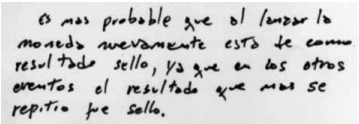 es mas probable que al lanzar la
moneda nuevamente esta de como
resultado sello, ya que en los otros
eventos el resultado que mas se
repitio fue sello.